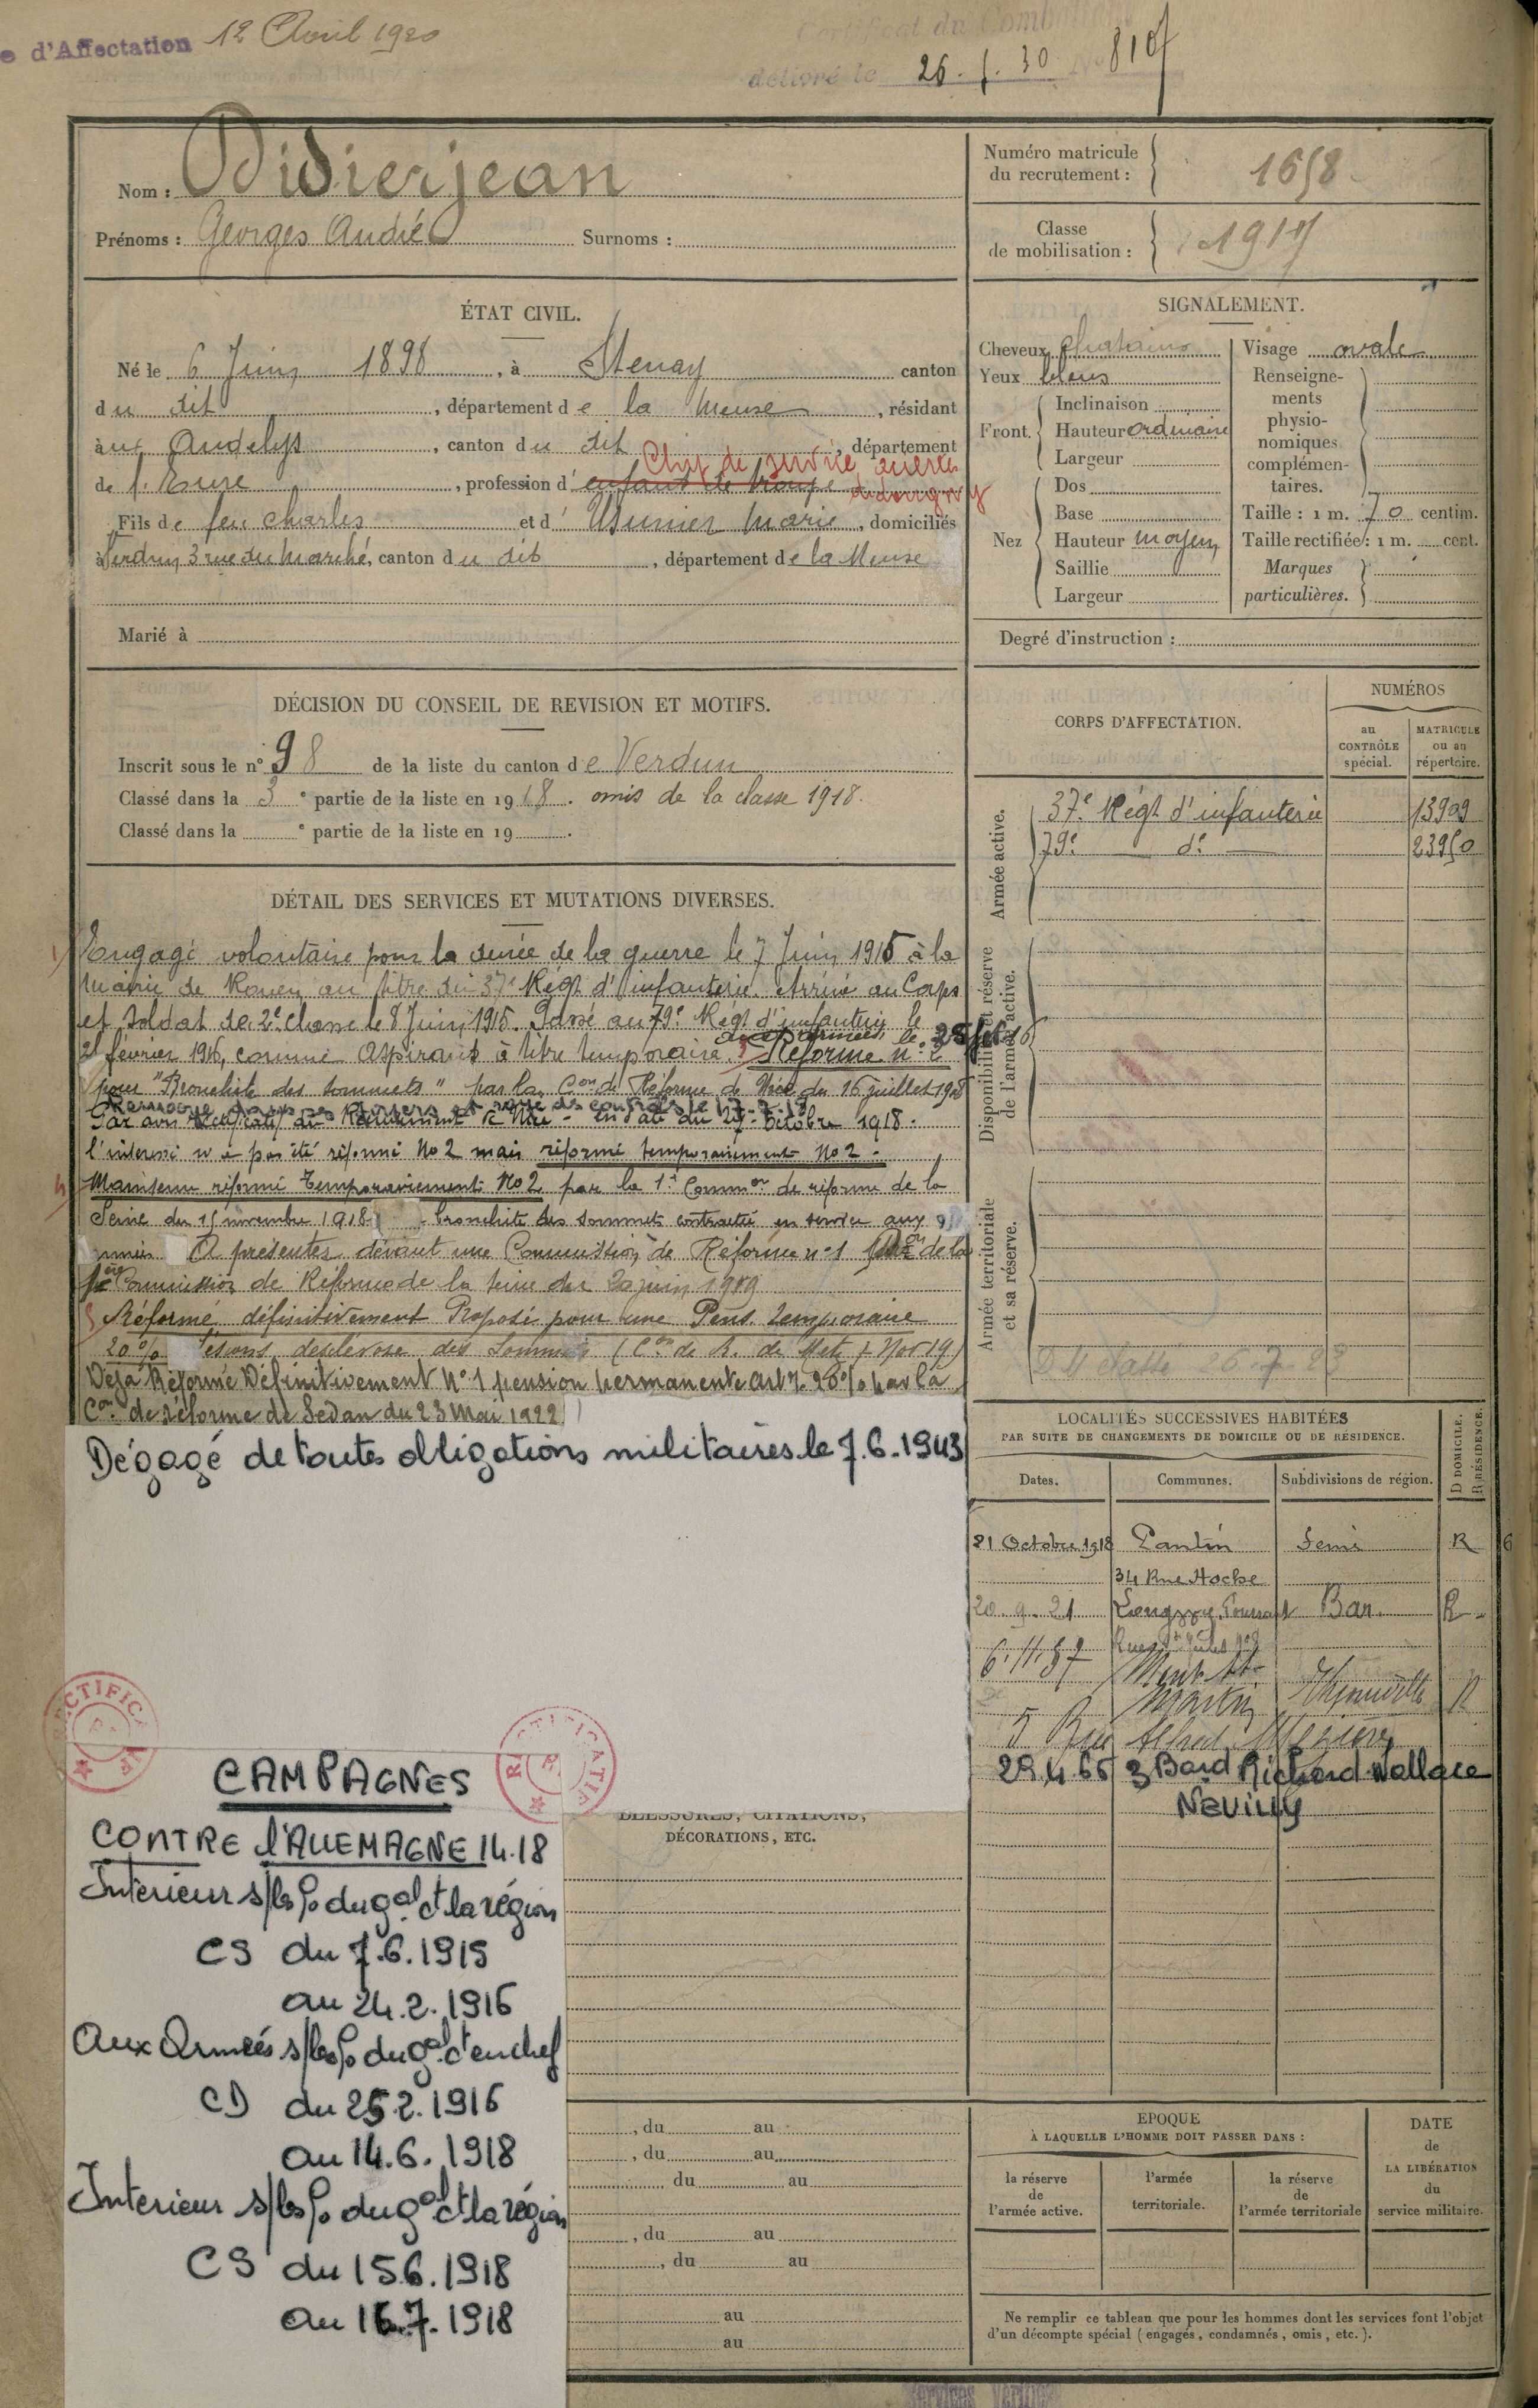 e d'Affectation 12 Avril 1920
Certificat du Combattant
délivré le 26. 30 N° 810
Nom : Didierjean
Prénoms : Georges André Surnoms :
Numéro matricule
du recrutement : 1658
Classe
de mobilisation : 1917
ÉTAT CIVIL.
Né le 6 Juin 1898, à Stenay canton
du dit, département de la Meuse, résidant
aux Andelys, canton du dit, département
de l'Eure, profession d'enfant de troupe
Chef de service
Fils de feu Charles et d'Usunier Marie, domiciliés
à Verdun 3 rue du Marché, canton du dit, département de la Meuse
Marié à
SIGNALEMENT.
Cheveux chatains
Yeux bleus
Front.
Inclinaison
Hauteur ordinaire
Largeur
Nez
Dos
Base
Hauteur moyen
Saillie
Largeur
Visage ovale
Renseigne-
ments
physio-
nomiques
complémen-
taires.
Taille : 1 m. 70 centim.
Taille rectifiée : 1 m. cent.
Marques
particulières.
Degré d'instruction :
DÉCISION DU CONSEIL DE REVISION ET MOTIFS.
Inscrit sous le n° 98 de la liste du canton de Verdun
Classé dans la 3e partie de la liste en 1918. omis de la classe 1918.
Classé dans la e partie de la liste en 19 .
CORPS D'AFFECTATION.
NUMÉROS
au
CONTRÔLE
spécial.
MATRICULE
ou au
répertoire.
Armée active.
37e Régt d'infanterie 13909
79e do 23950
Disponibilité et réserve
de l'armée active.
Armée territoriale
et sa réserve.
classe 26.7.23
DÉTAIL DES SERVICES ET MUTATIONS DIVERSES.
Engagé volontaire pour la durée de la guerre le 7 Juin 1915 à la
Mairie de Rouen au titre du 37e Régt d'infanterie. Arrivé au Corps
et soldat de 2e classe le 8 Juin 1915. Passé au 79e Régt d'infanterie le
février 1916, comme Aspirant à titre temporaire. Réformé n° 2
aux armées le 25 fev 16
pour "Bronchite des sommets" par la Con de Réforme de Nice du 16 juillet 1918
Renvoyé dans ses foyers et rayé des contrôles le 17-7-18
Par avis rectificatif du Recrutement de Nice en date du 27 Octobre 1918.
l'intéressé n'a pas été réformé No 2 mais réformé temporairement No 2.
Maintenu réformé temporairement No 2 par la 1e Common de réforme de la
Seine du 15 novembre 1918 - bronchite des sommets contractée en service aux
armées A présenter devant une Commission de Réforme n° 1 de la
1ère Commission de Réforme de la Seine du 20 juin 1919
Réformé définitivement Proposé pour une Pens. temporaire
20 % lésions de sclérose des Sommets (Con de R. de Metz 7 Nov 19)
Déjà Réformé Définitivement N° 1 pension permanente art 7 20 % par la
Con de réforme de Sedan du 23 Mai 1922
Dégagé de toutes obligations militaires le 7.6.1943
LOCALITÉS SUCCESSIVES HABITÉES
PAR SUITE DE CHANGEMENTS DE DOMICILE OU DE RÉSIDENCE.
Dates. Communes. Subdivisions de région.
D DOMICILE.
R RÉSIDENCE.
21 Octobre 1918 Pantin Seine R
34 Rue Hoche
20.9.21 Longwy Bar R
6.11.37 Mont St
Martin Thionville R
5 Rue Alfred Mézières
29.4.65 3 Bard Richard Wallace
Neuilly
CAMPAGNES
CONTRE l'ALLEMAGNE 14.18
Interieur s/les o du gal ct la région
CS du 7.6.1915
au 24.2.1916
Aux Armées s/les o du gal ct en chef
CD du 25.2.1916
au 14.6.1918
Interieur s/les o du gal ct la région
CS du 15.6.1918
au 16.7.1918
BLESSURES, CITATIONS,
DÉCORATIONS, ETC.
, du au
, du au
du au
, du au
, du au
au
au
EPOQUE
À LAQUELLE L'HOMME DOIT PASSER DANS :
la réserve
de
l'armée active.
l'armée
territoriale.
la réserve
de
l'armée territoriale
DATE
de
LA LIBÉRATION
du
service militaire.
Ne remplir ce tableau que pour les hommes dont les services font l'objet
d'un décompte spécial (engagés, condamnés, omis, etc.).